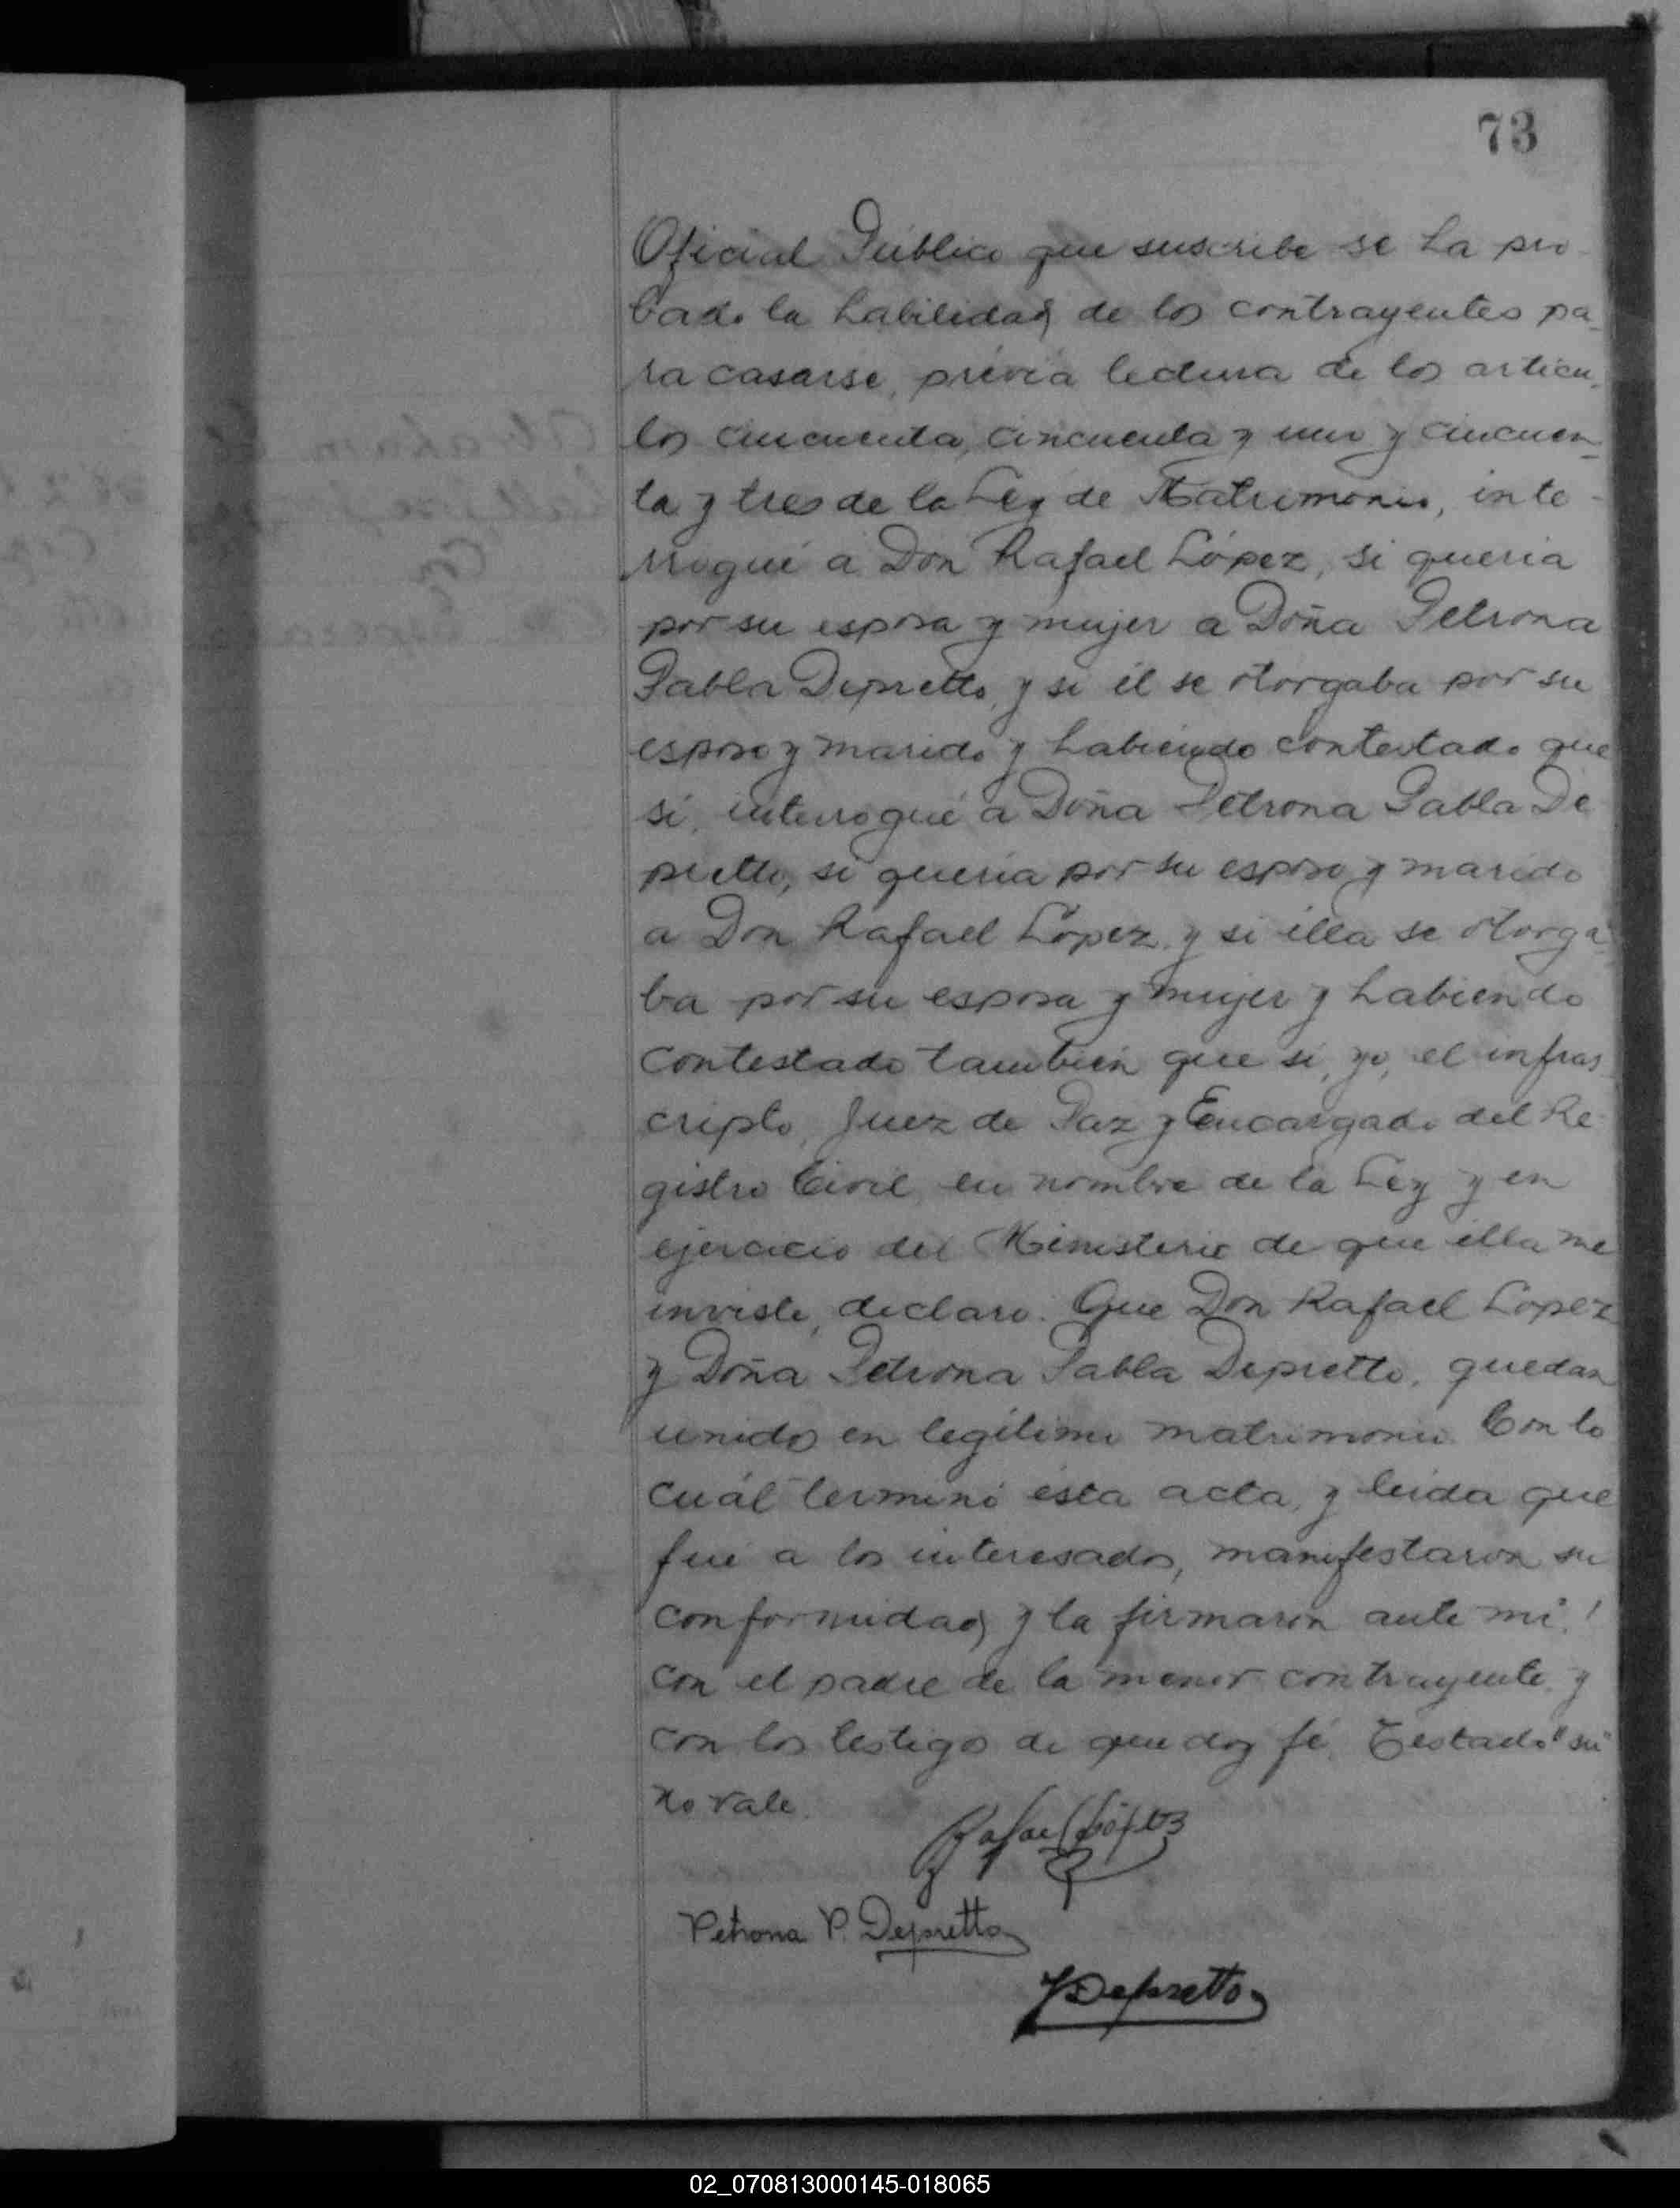 73
Oficial Público que suscribe se ha pro
bado la habilidad de los contrayentes pa_
ra casarse, prévia lectura de los articu_
los cincuenta, cincuenta y uno y cincuen_
ta y tres de la Ley de Matrimonio, inte-
rrogué a Don Rafael López, si queria
por su esposa y mujer a Doña Petrona
Pabla Depretto, y si él se otorgaba por su
esposo y marido y habiendo contestado que
si, interrogué a Doña Petrona Pabla De
pretto, si queria por su esposo y marido
a Don Rafael López, y si élla se otorga_
ba por su esposa y mujer y habiendo
contestado también que si, yo, el infras_
cripto, Juez de Paz y Encargado del Re
gistro Civil, en nombre de la Ley y en
ejercicio del Ministerio de que élla me
inviste, declaro. Que Don Rafael López
y Doña Petrona Pabla Depretto, quedan
unidos en legítimo matrimonio. Con lo
cuál terminó ésta acta, y leida que
fué a los interesados, manifestaron su
conformidad y la firmaron ante mi,
con el padre de la menor contrayente y
con los testigos de que doy fé. Testado "su"
no vale.
Rafael López
Petrona P. Depretto
Depretto
02_070813000145-018065